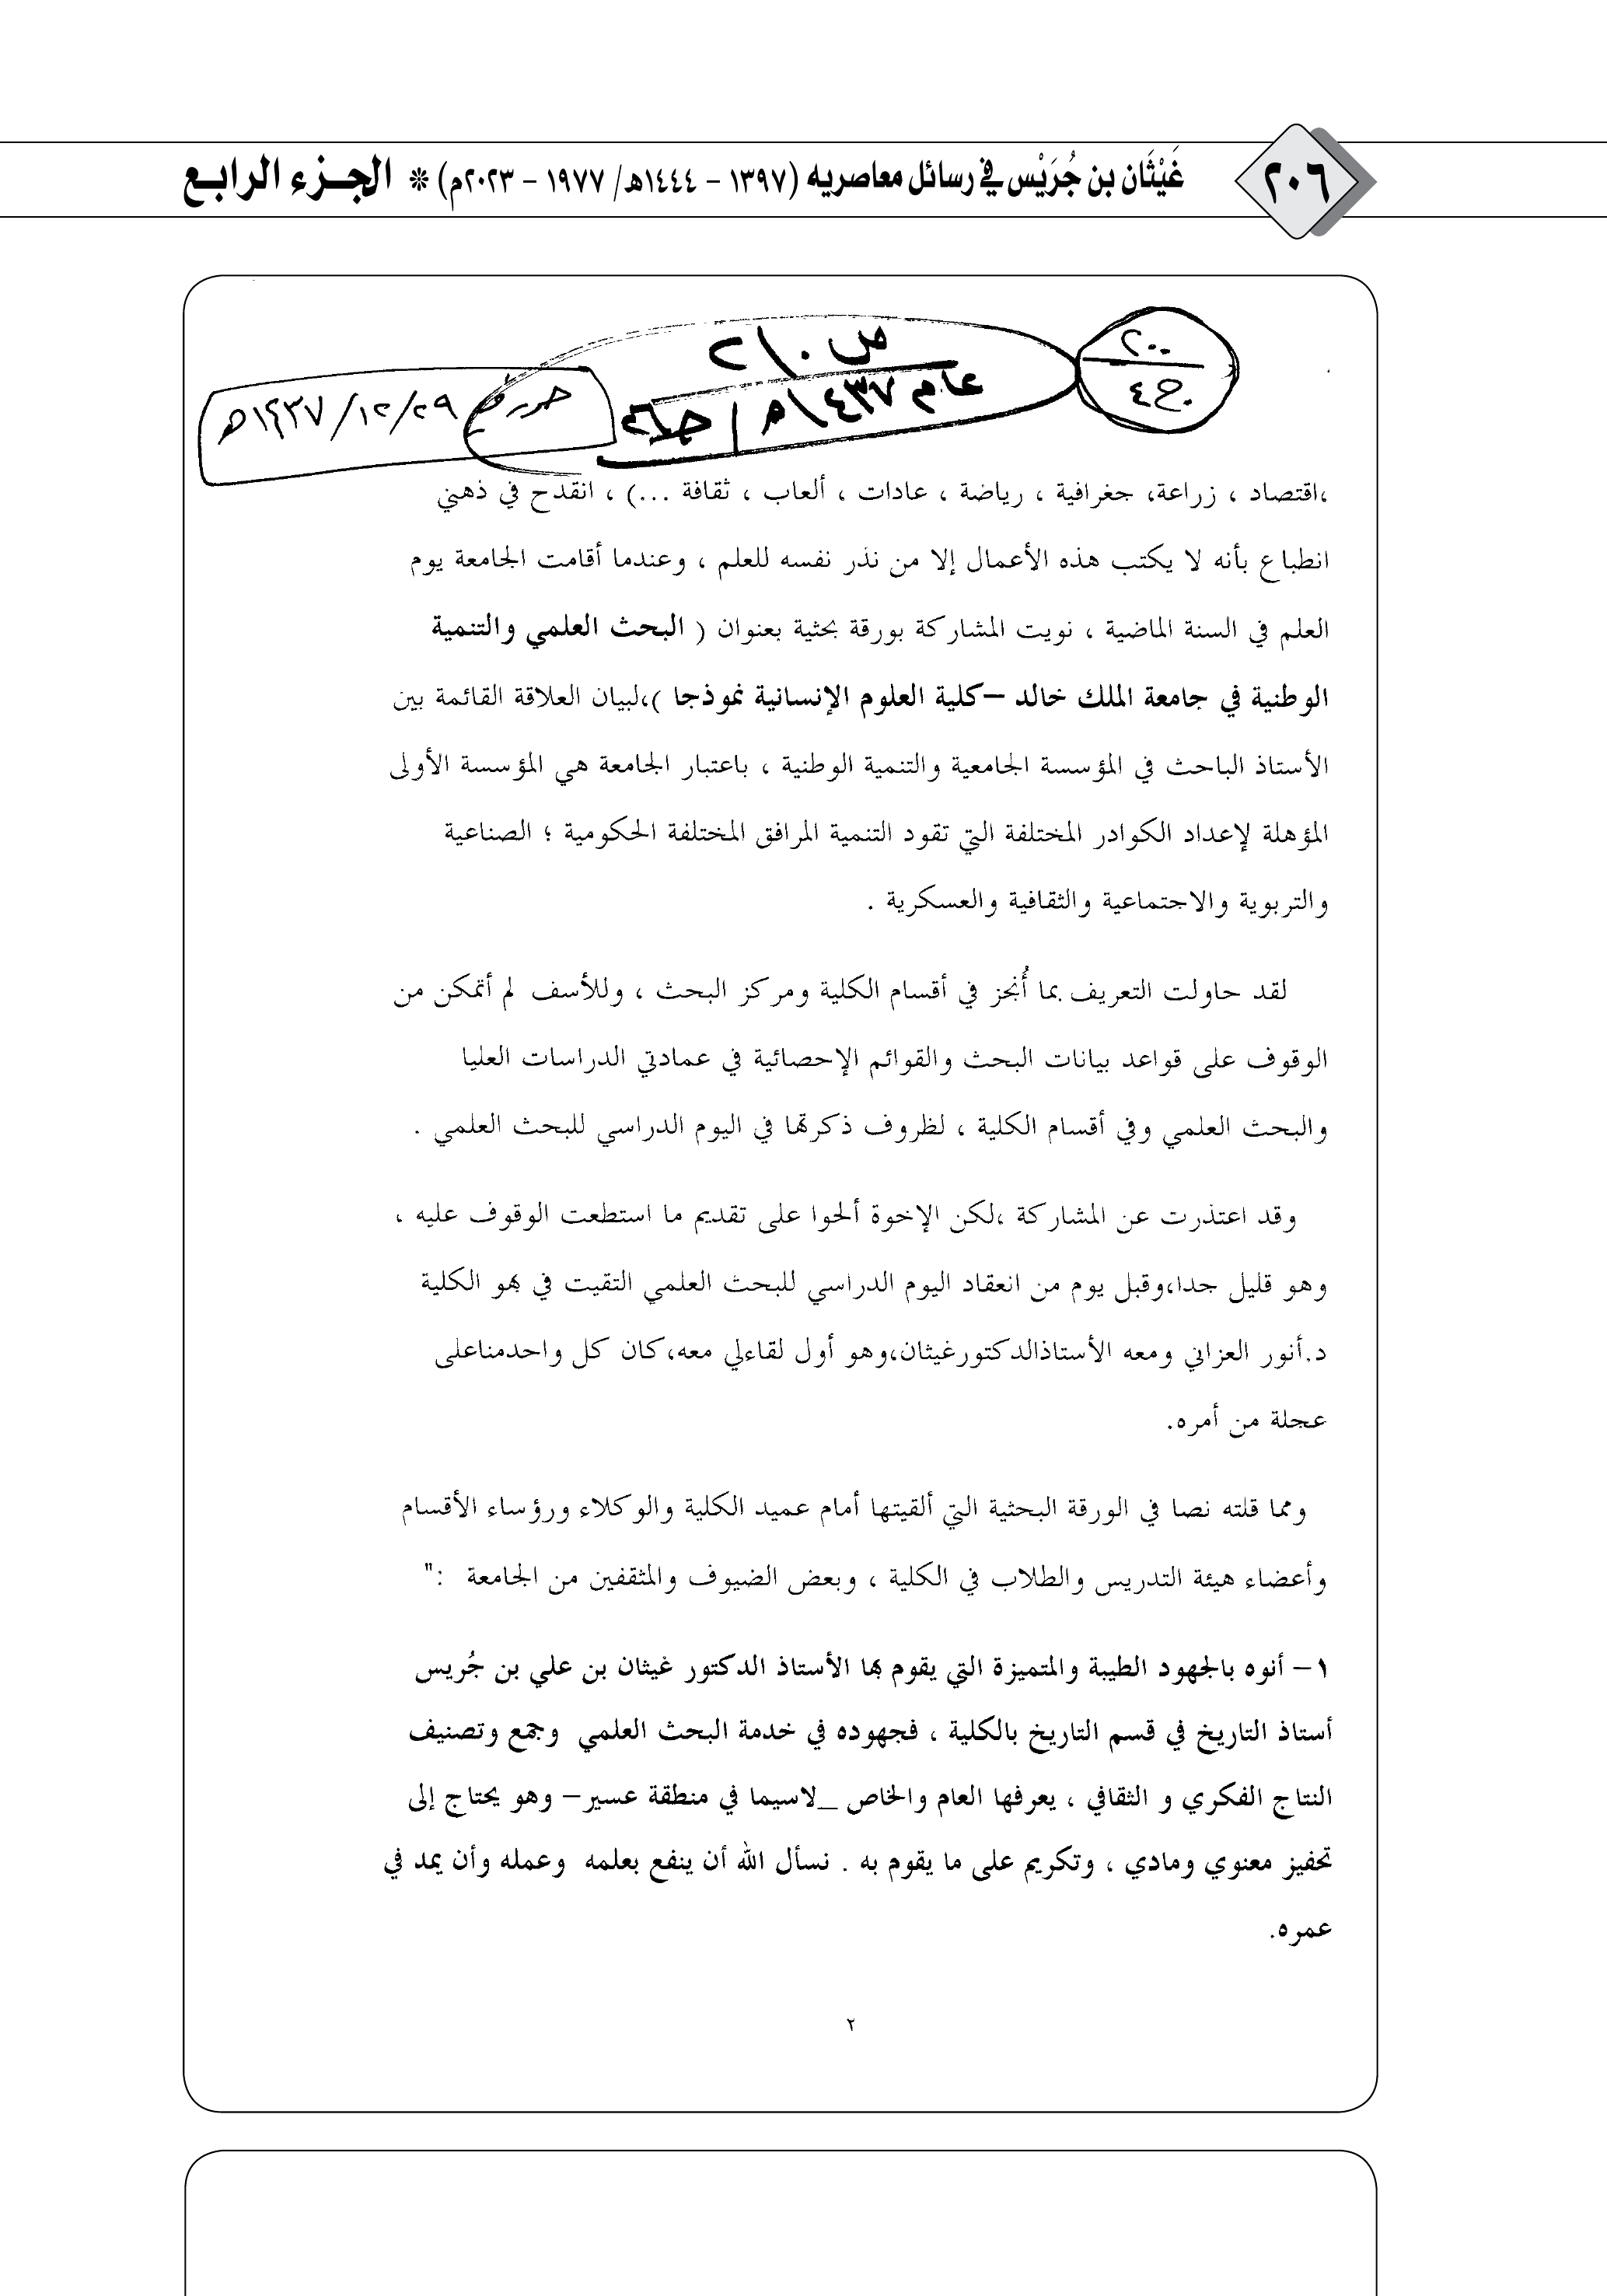 ٢٠٦
غَيْثَان بن جُرَيْس في رسائل معاصريه (١٣٩٧ – ١٤٤٤هـ/ ١٩٧٧ – ٢٠٢٣م) * الجــزء الرابــع
٢٠٠
ج٤
ص ٢١٠
عام ١٤٣٧هـ /
حرر في ١٤٣٧/١٢/٢٩هـ
،اقتصاد ، زراعة، جغرافية ، رياضة ، عادات ، ألعاب ، ثقافة ...) ، انقدح في ذهني
انطباع بأنه لا يكتب هذه الأعمال إلا من نذر نفسه للعلم ، وعندما أقامت الجامعة يوم
العلم في السنة الماضية ، نويت المشاركة بورقة بحثية بعنوان ( البحث العلمي والتنمية
الوطنية في جامعة الملك خالد –كلية العلوم الإنسانية نموذجا )،لبيان العلاقة القائمة بين
الأستاذ الباحث في المؤسسة الجامعية والتنمية الوطنية ، باعتبار الجامعة هي المؤسسة الأولى
المؤهلة لإعداد الكوادر المختلفة التي تقود التنمية المرافق المختلفة الحكومية ؛ الصناعية
والتربوية والاجتماعية والثقافية والعسكرية .
لقد حاولت التعريف بما أُنجز في أقسام الكلية ومركز البحث ، وللأسف لم أتمكن من
الوقوف على قواعد بيانات البحث والقوائم الإحصائية في عمادتي الدراسات العليا
والبحث العلمي وفي أقسام الكلية ، لظروف ذكرتها في اليوم الدراسي للبحث العلمي .
وقد اعتذرت عن المشاركة ،لكن الإخوة ألحوا على تقديم ما استطعت الوقوف عليه ،
وهو قليل جدا،وقبل يوم من انعقاد اليوم الدراسي للبحث العلمي التقيت في بهو الكلية
د.أنور العزاني ومعه الأستاذالدكتورغيثان،وهو أول لقاءلي معه،كان كل واحدمناعلى
عجلة من أمره.
ومما قلته نصا في الورقة البحثية التي ألقيتها أمام عميد الكلية والوكلاء ورؤساء الأقسام
وأعضاء هيئة التدريس والطلاب في الكلية ، وبعض الضيوف والمثقفين من الجامعة :"
١– أنوه بالجهود الطيبة والمتميزة التي يقوم بها الأستاذ الدكتور غيثان بن علي بن جُريس
أستاذ التاريخ في قسم التاريخ بالكلية ، فجهوده في خدمة البحث العلمي وجمع وتصنيف
النتاج الفكري و الثقافي ، يعرفها العام والخاص _لاسيما في منطقة عسير– وهو يحتاج إلى
تحفيز معنوي ومادي ، وتكريم على ما يقوم به . نسأل الله أن ينفع بعلمه وعمله وأن يمد في
عمره.
٢